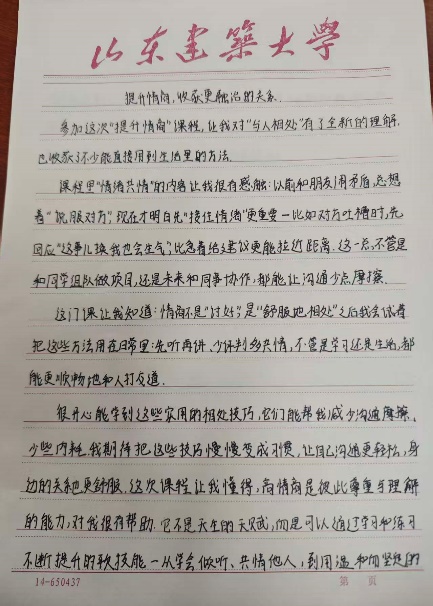 山东建筑大学
提升情商，收获更融洽的关系.
参加这次"提升情商"课程，让我对"与人相处"有了全新的理解.
也收获了不少能直接用到生活里的方法.
课程里"情绪共情"的内容让我很有感触：以前和朋友闹矛盾，总想
着"说服对方"，现在才明白先"接住情绪"更重要一比如对方吐槽时，先
回应"这事儿换我也会生气"，比急着给建议更能拉近距离. 这一点，不管是
和同学组队做项目，还是未来和同事协作，都能让沟通少点摩擦.
这门课让我知道：情商不是"讨好"，是"舒服地相处"之后我会试着
把这些方法用在日常里：先听再讲、少评判多共情，不管是学习还是生活，都
能更顺畅地和人打交道.
很开心能学到这些实用的相处技巧，它们能帮我减少沟通摩擦.
少些内耗. 我期待把这些技巧慢慢变成习惯，让自己沟通更轻松，身
边的关系也更舒服. 这次课程让我懂得，高情商是彼此尊重与理解
的能力，对我很有帮助. 它不是天生的天赋，而是可以通过学习和练习
不断提升的软技能一从学会倾听、共情他人，到用温和而坚定的
14-650437 第 页